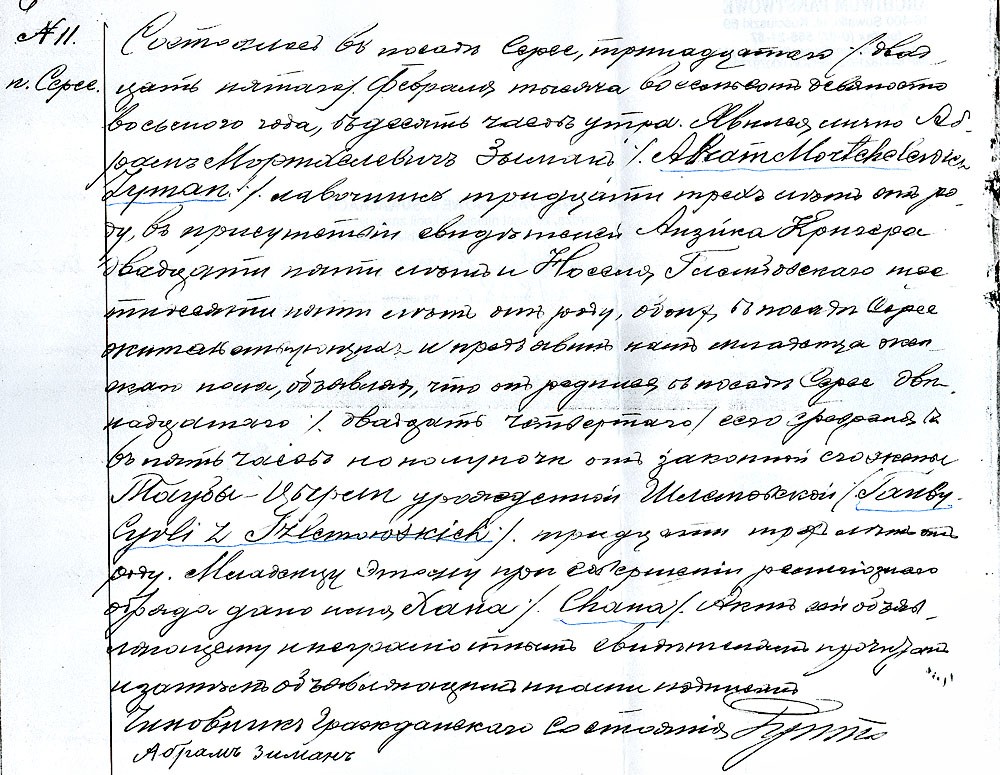 № 11.
п. Серее.
Состоялось въ посадѣ Серее, тринадцатаго /: двад-
цать пятаго/ Февраля тысяча восемьсотъ девяносто
восьмого года, въ десять часовъ утра. Явился лично Аб-
рамъ Мортхелевичъ Зыманъ /: Abram Mortchelewicz
Zyman :/ лавочникъ тридцати трехъ лѣтъ отъ ро-
ду, въ присутствіи свидѣтелей Айзика Кригера
двадцати пяти лѣтъ и Носеля шес-
тидесяти пяти лѣтъ отъ роду, обоихъ въ посадѣ Серее
жительствующихъ и предъявилъ намъ младенца жен-
скаго пола, объявляя, что онъ родился въ посадѣ Серее две-
надцатаго /: двадцать четвертаго/ сего Февраля
въ пять часовъ по полуночи отъ законной его жены
Таубы-Цырли урожденной Шлемовской /: Tauby-
Cyrli z Szlemowskich :/ тридцати трехъ лѣтъ отъ
роду. Младенцу этому при совершеніи религіознаго
обряда дано имя Хана /: Chana :/ Актъ сей объяв-
ляющему и неграмотнымъ свидѣтелямъ прочитанъ
и затѣмъ объявляющимъ и нами подписанъ
Чиновникъ Гражданскаго Состоянія
Абрамъ Зиманъ